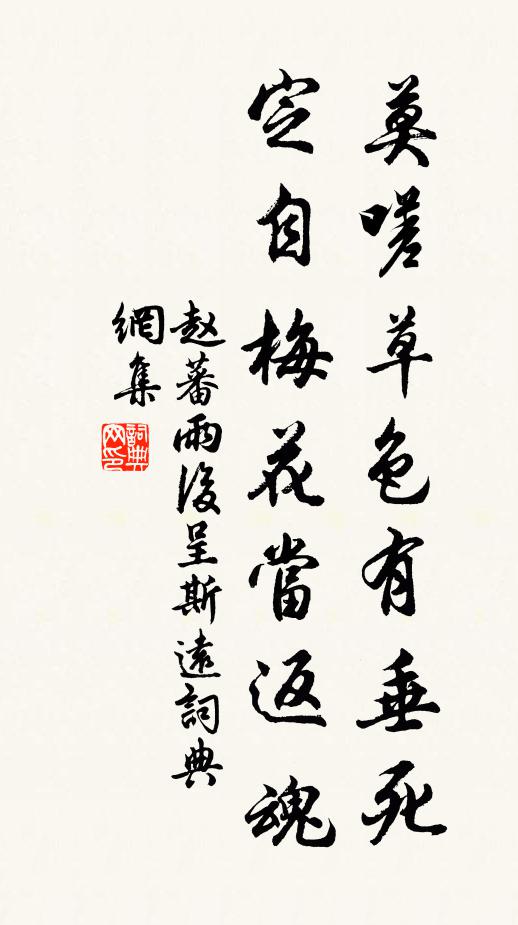 莫嗟草色有垂死
定自梅花當返魂
赵蕃雨後呈斯遠詞典
網集
詞典网印